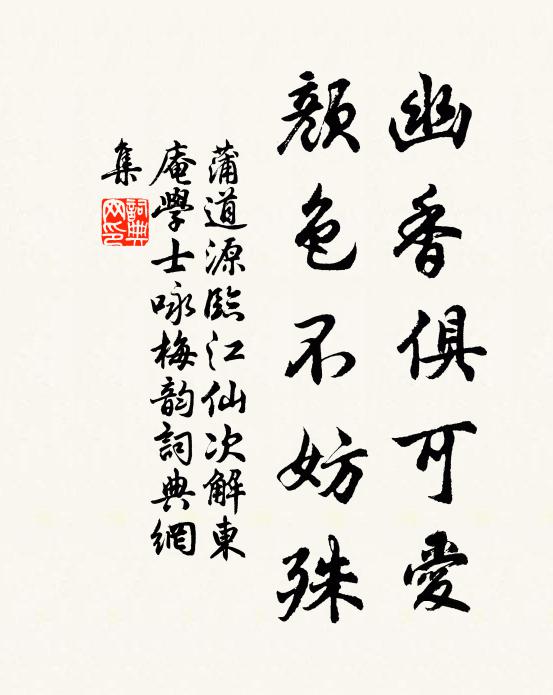 幽香俱可愛
顏色不妨殊
蒲道源臨江仙次解東
庵學士咏梅韵詞典網
集
詞典網印